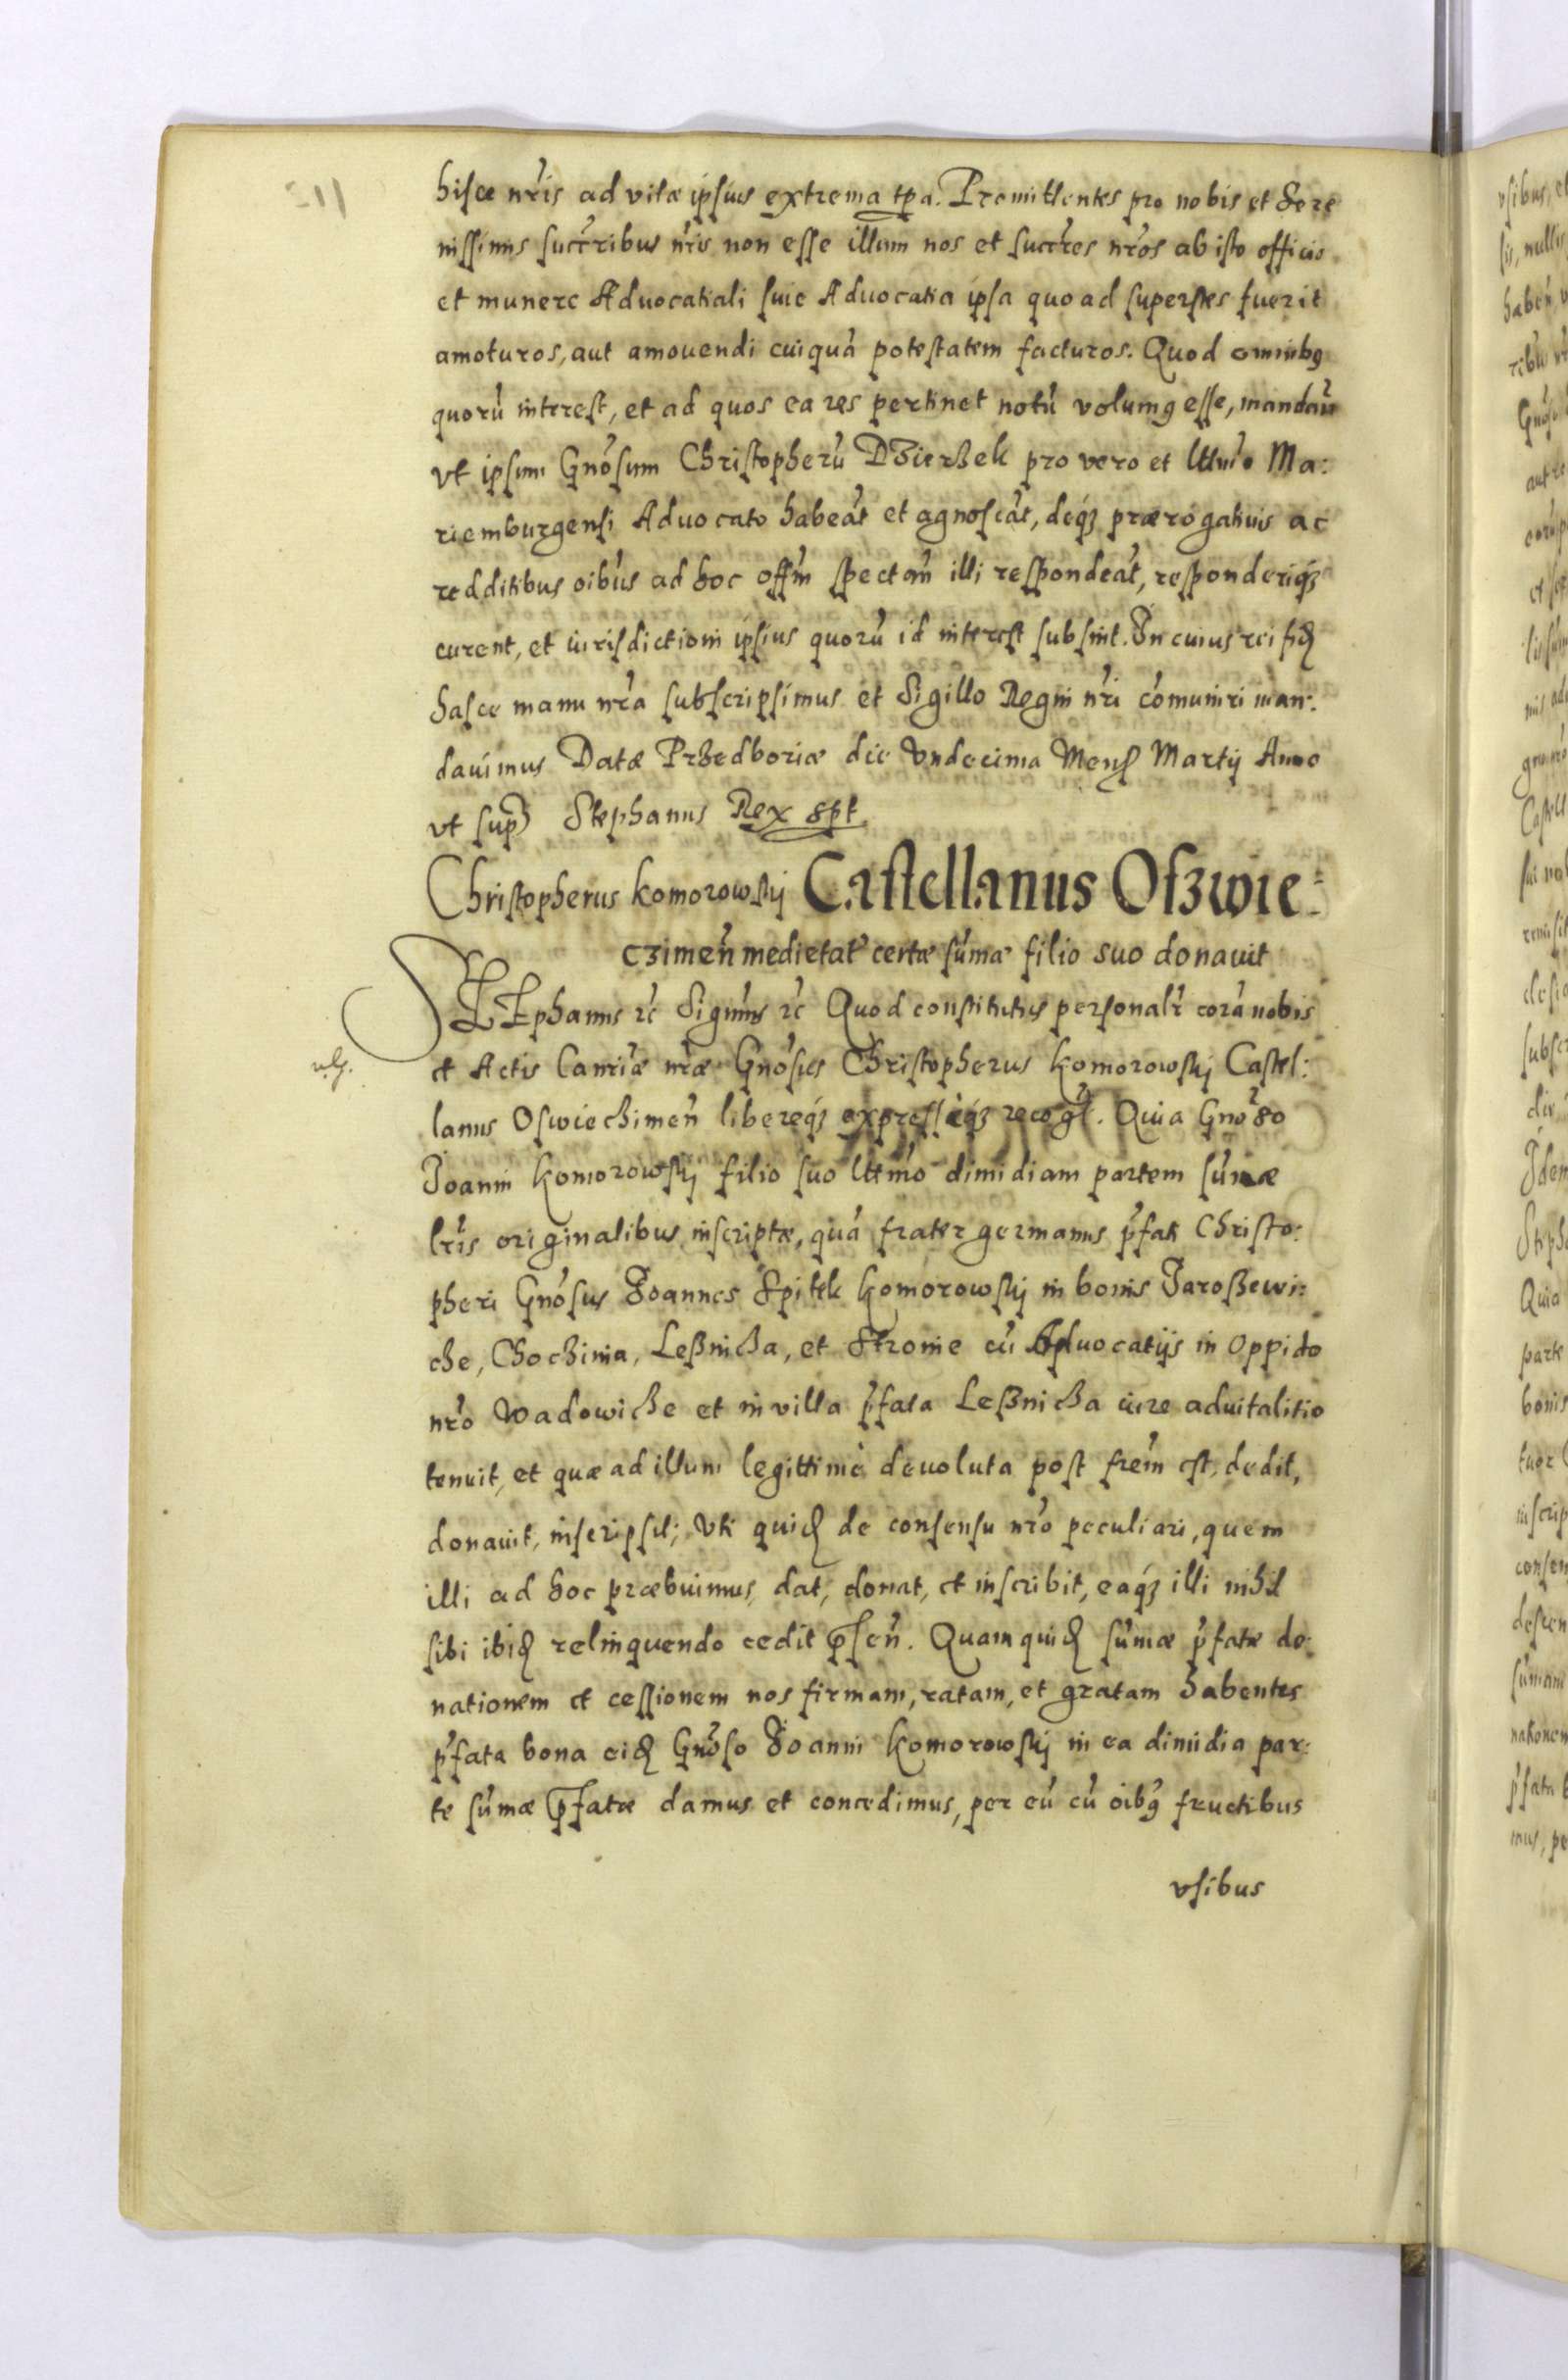 hisce nr̃is ad vitæ ipsius extrema tp̃a. Promittentes pro nobis et Sere
nissimis succr̃ribus nr̃is non esse illum nos et succr̃es nr̃os ab isto officio
et munere Advocatiali sive Advocatia ipsa quoad superstes fuerit
amoturos, aut amovendi cuiquã potestatem facturos. Quod omnibꝯ
quorũ interest, et ad quos ea res pertinet notũ volumꝯ esse, mandañ
vt ipsum Gnõsum Christopherũ Dzierżek pro vero et lttimo Ma:
riemburgensi Advocato habeãt et agnoscãt, deqꝫ prærogativis ac
redditibus oĩbus ad hoc offm̃ spectañ illi respondeãt, responderiqꝫ
curent, et iurisdictioni ipsius quorũ id interest subsint. In cuius rei fiđ
hasce manu nr̃a subscripsimus et Sigillo Regni nr̃i cõmuniri man:
davimus Datæ Przedboriæ die Vndecima Mens̃ Martij Anno
vt sup̃ Stephanus Rex spt
Christopherus Komorowskij Castellanus Oszwie:
czimeñ medietat̃ certæ sũmæ filio suo donavit
STEphanus r̃c Signim̃s r̃c Quod constitutus personalr̃ corã nobis
et Actis Canr̃iæ nr̃æ Gnõsus Christopherus Komorowskij Castel:
lanus Oswieczimeñ libereqꝫ expresseqꝫ recogl̃. Quia Gnõso
Joanni Komorowskij filio suo lttimo dimidiam partem sũmæ
lr̃is originalibus inscriptæ, quã frater germanus p̃fati Christo:
pheri Gnõsus Joannes Spitek Komorowskij in bonis Jaroszewi:
cze, Choczinia, Leßnicza, et Stronie cũ Advocatijs in Oppido
nr̃o Wadowicze et in villa p̃fata Leßnicza iure advitalitio
tenuit, et quæ ad illum legittimè devoluta post frem̃ est, dedit,
donavit, inscripsit; Vti quiđ de consensu nr̃o peculiari, quem
illi ad hoc præbuimus, dat, donat, et inscribit, eaqꝫ illi nihil
sibi ibiđ relinquendo cedit p̃señ. Quam quiđ sũmæ p̃fatæ do:
nationem et cessionem nos firmam, ratam, et gratam habentes
p̃fata bona eiđ Gnõso Joanni Komorowskij in ea dimidia par:
te sũmæ p̃fatæ damus et concedimus, per eũ cũ oĩbꝯ fructibus
vsibus